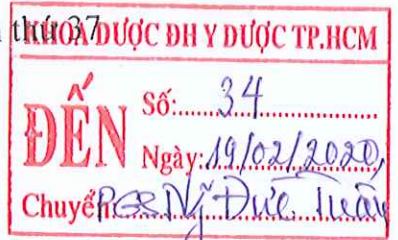 thứ 37
KHOA DƯỢC ĐH Y DƯỢC TP.HCM
ĐẾN
Số: 34
Ngày: 19/02/2020
Chuyển: PGS Ng Đức Tuấn